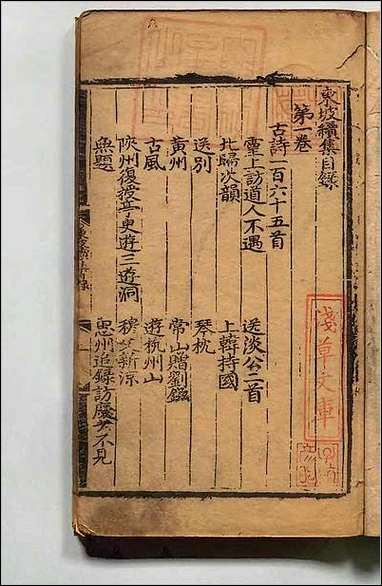 東坡續集目録
第一卷
古詩一百六十五首
臺上訪道人不遇
送淡公二首
北歸次韻
上韓持國
送别
琴枕
黄州
常山贈劉鎡
古風
遊杭州山
陝州復遊亭更遊三遊洞
無題
忠州追録訪處士不見
淺草文庫